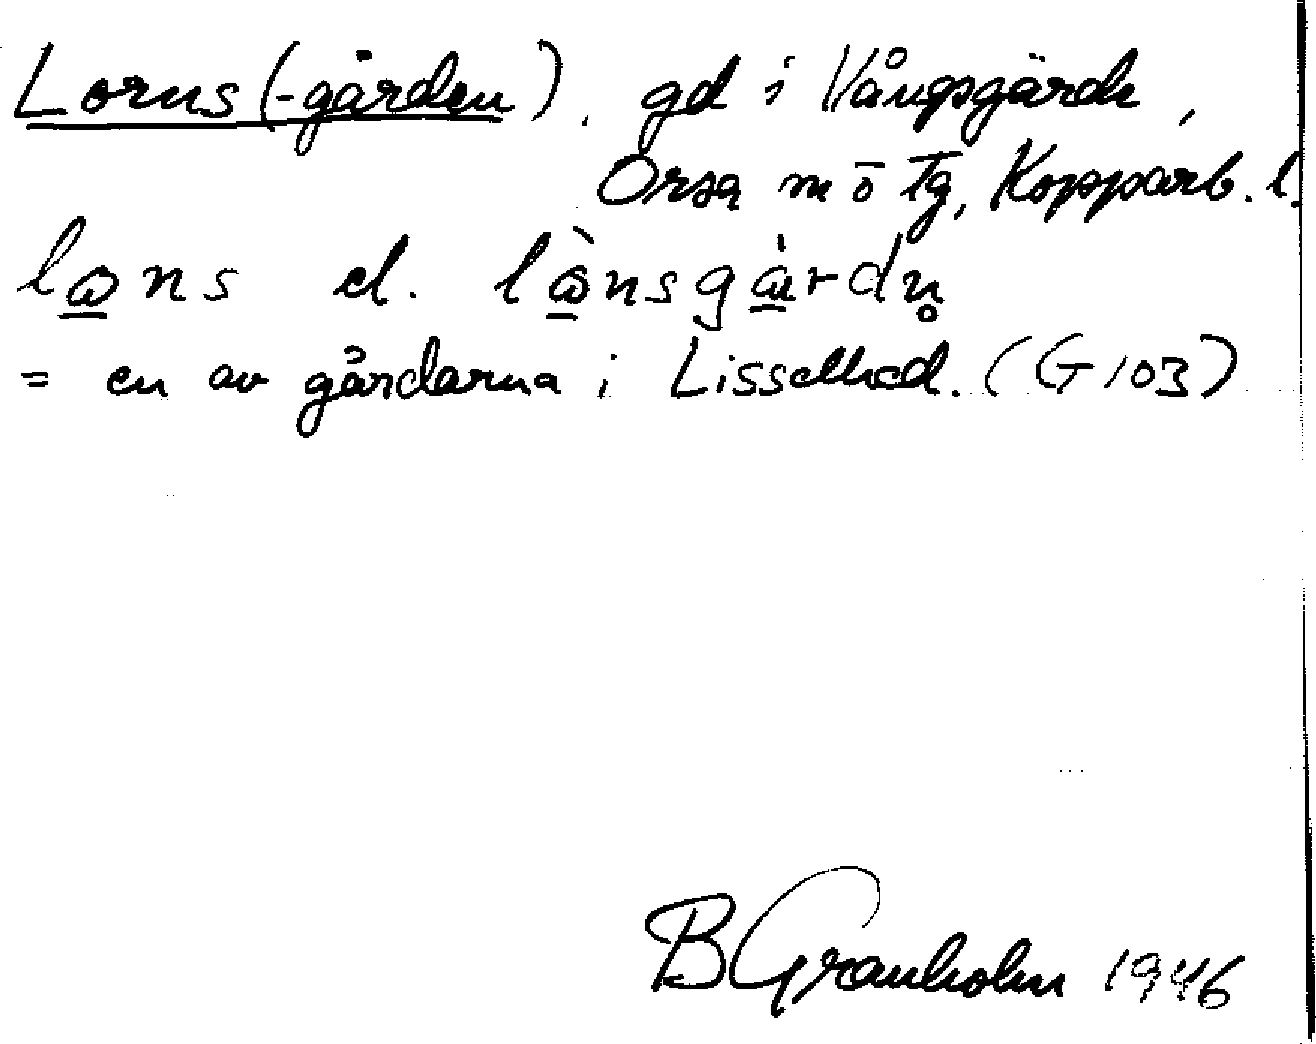 Lorns (-gården). gd i Vångsgärde,
Orsa m ō Tg, Kopparb. l.
lɷns el. lɷ̀nsgàrdn̥
= en av gårdarna i Lisselhed. (G 103)
B Granholm 1946